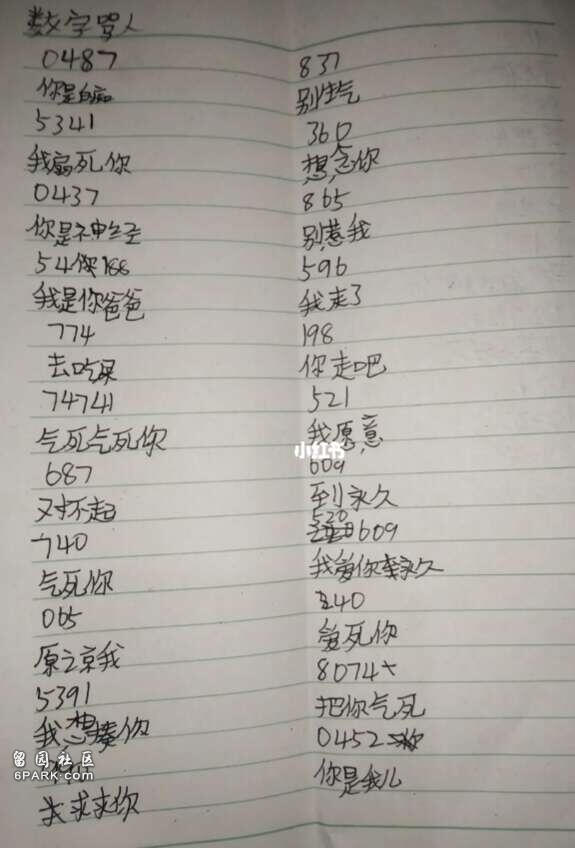 数字骂人
0487
你是白痴
5341
我扁死你
0437
你是神经
54你188
我是你爸爸
774
去吃屎
74741
气死气死你
687
对不起
740
气死你
065
原谅我
5391
我想揍你
我求求你
837
别生气
360
想念你
865
别惹我
596
我走了
198
你走吧
521
我愿意
609
到永久
520
609
我爱你到永久
240
爱死你
8074
把你气死
0452
你是我儿
小红书
留园社区
6PARK.COM